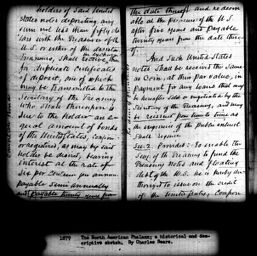 holders of said United
States notes depositing any
sum not less than fifty dol
lars with the Treasurer of the
U.S. or either of the assistant
Treasurers, shall receive
in duplicate certificates
of deposit, one of which
may be transmitted to the
Secretary of the Treasury
who shall thereupon is
sue to the holder an e
qual amount of bonds
of the United States, coupon
or registered, as may by said
holder be desired, bearing
interest at the rate of
six per centum per annum
payable semi annually
and payable twenty years from
the date thereof and redeem
able at the pleasure of the U.S.
after five years and payable
twenty years from the date there
of.
And such United States
notes shall be received the same
as coin, at their par value, in
payment for any loans that may
be hereafter sold or negotiated by the
Secretary of the Treasury, and may
be reissued from time to time as
the exigencies of the public interest
shall require
Sec 2. Provides: To enable the
Secy of the Treasury to fund the
Treasury notes and floating
debt of the U.S. he is hereby au-
thorized to issue on the credit
of the United States, Coupon
1879 The North American Phalanx; a historical and des-
criptive sketch. By Charles Sears.